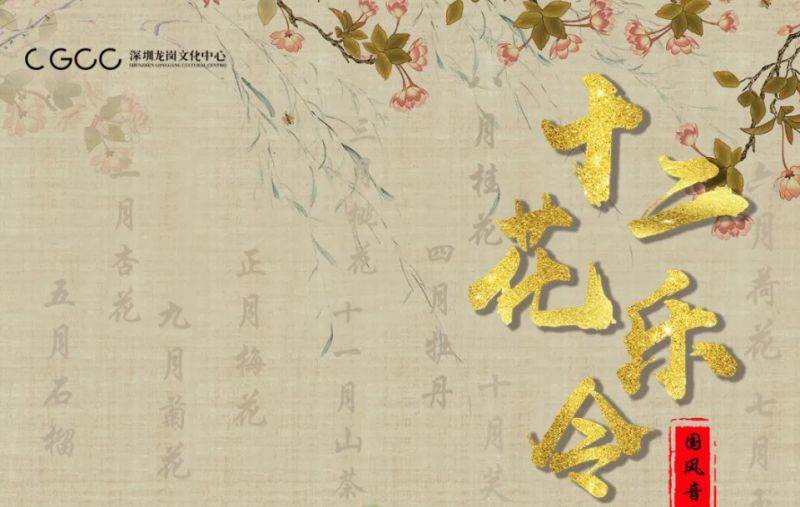 CGCC 深圳龙岗文化中心
SHENZHEN LONGGANG CULTURAL CENTRE
十二花乐令
国风音
六月荷花
七月
八月桂花
十月芙
四月牡丹
三月桃花
十一月山茶
正月梅花
九月菊花
二月杏花
五月石榴